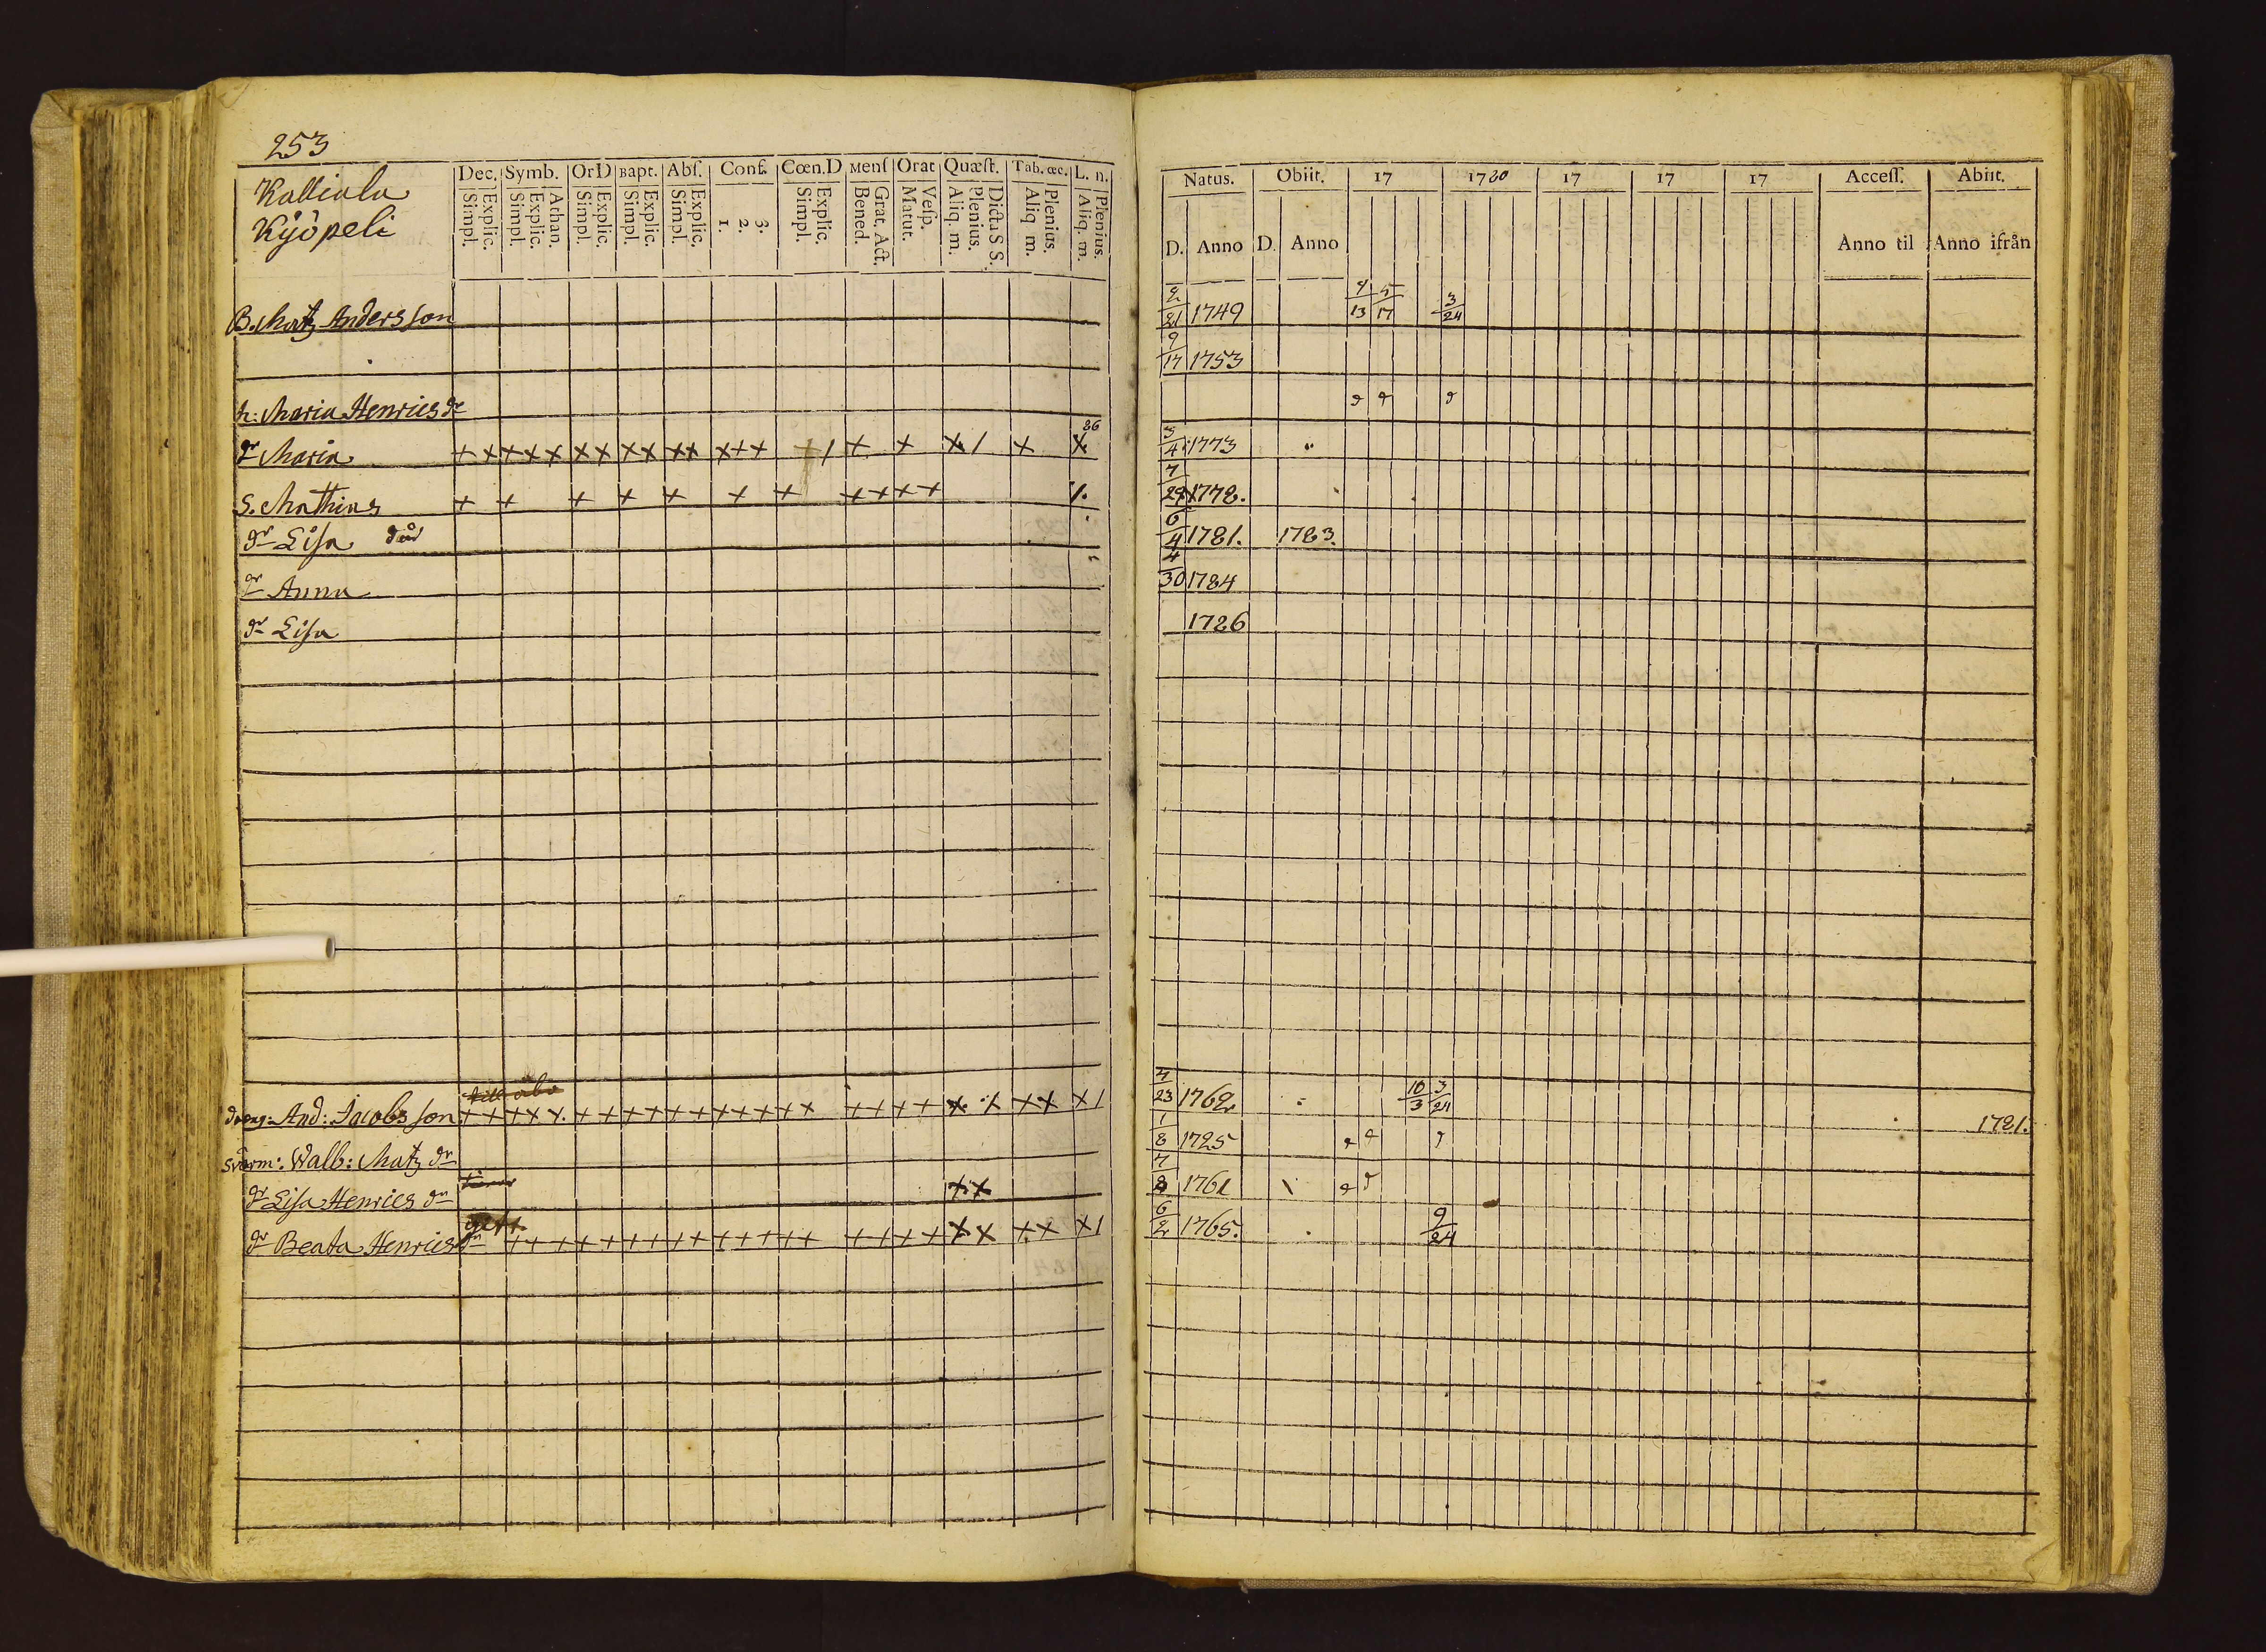 253
Kalliala
Kyöpeli
Dec. Symb. Or D Bapt. Abſ. Conf. Cœn. D Menſ Orat Quæſt. Tab. œc. L. n.
Explic. Simpl. Athan. Explic. Simpl. Explic. Simpl. Explic. Simpl. Explic. Simpl. 3. 2. 1. Explic. Simpl. Grat. Act. Bened. Veſp. Matut. Dicta S S. Plenius. Aliq. m. Plenius. Aliq. m. Plenius. Aliq. m.
B. Matz Andersson
h: Maria Henrics dr
dr Maria + + + + x x x x x x x x + + + / + + x / + x 86
S. Mathias + + + + + + + + + + +
dr Lisa död
dr Anna
dr Lisa
till åbo
dreng: And: Jacobsson + + + + x + + + + + + + + + + + + + + + x x + x x /
Svärm: Walb: Matz dr
dr Lisa Henrics dr x x
gift
dr Beata Henrics dr + + + + + + + + + + + + + + + + + + x x + x x /
Natus. Obiit. 17 1780 17 17 17 Acceſſ. Abiit.
D. Anno D. Anno Anno til Anno ifrån
2/21 1749 4/13 5/17 3/24
9/17 1753
3/4 1773
7/29 1778.
6/4 1781. 1783.
4/30 1784
1786
4/23 1762 10/3 3/24 1781.
1/8 1725
7/8 1761
6/2 1765. 9/24